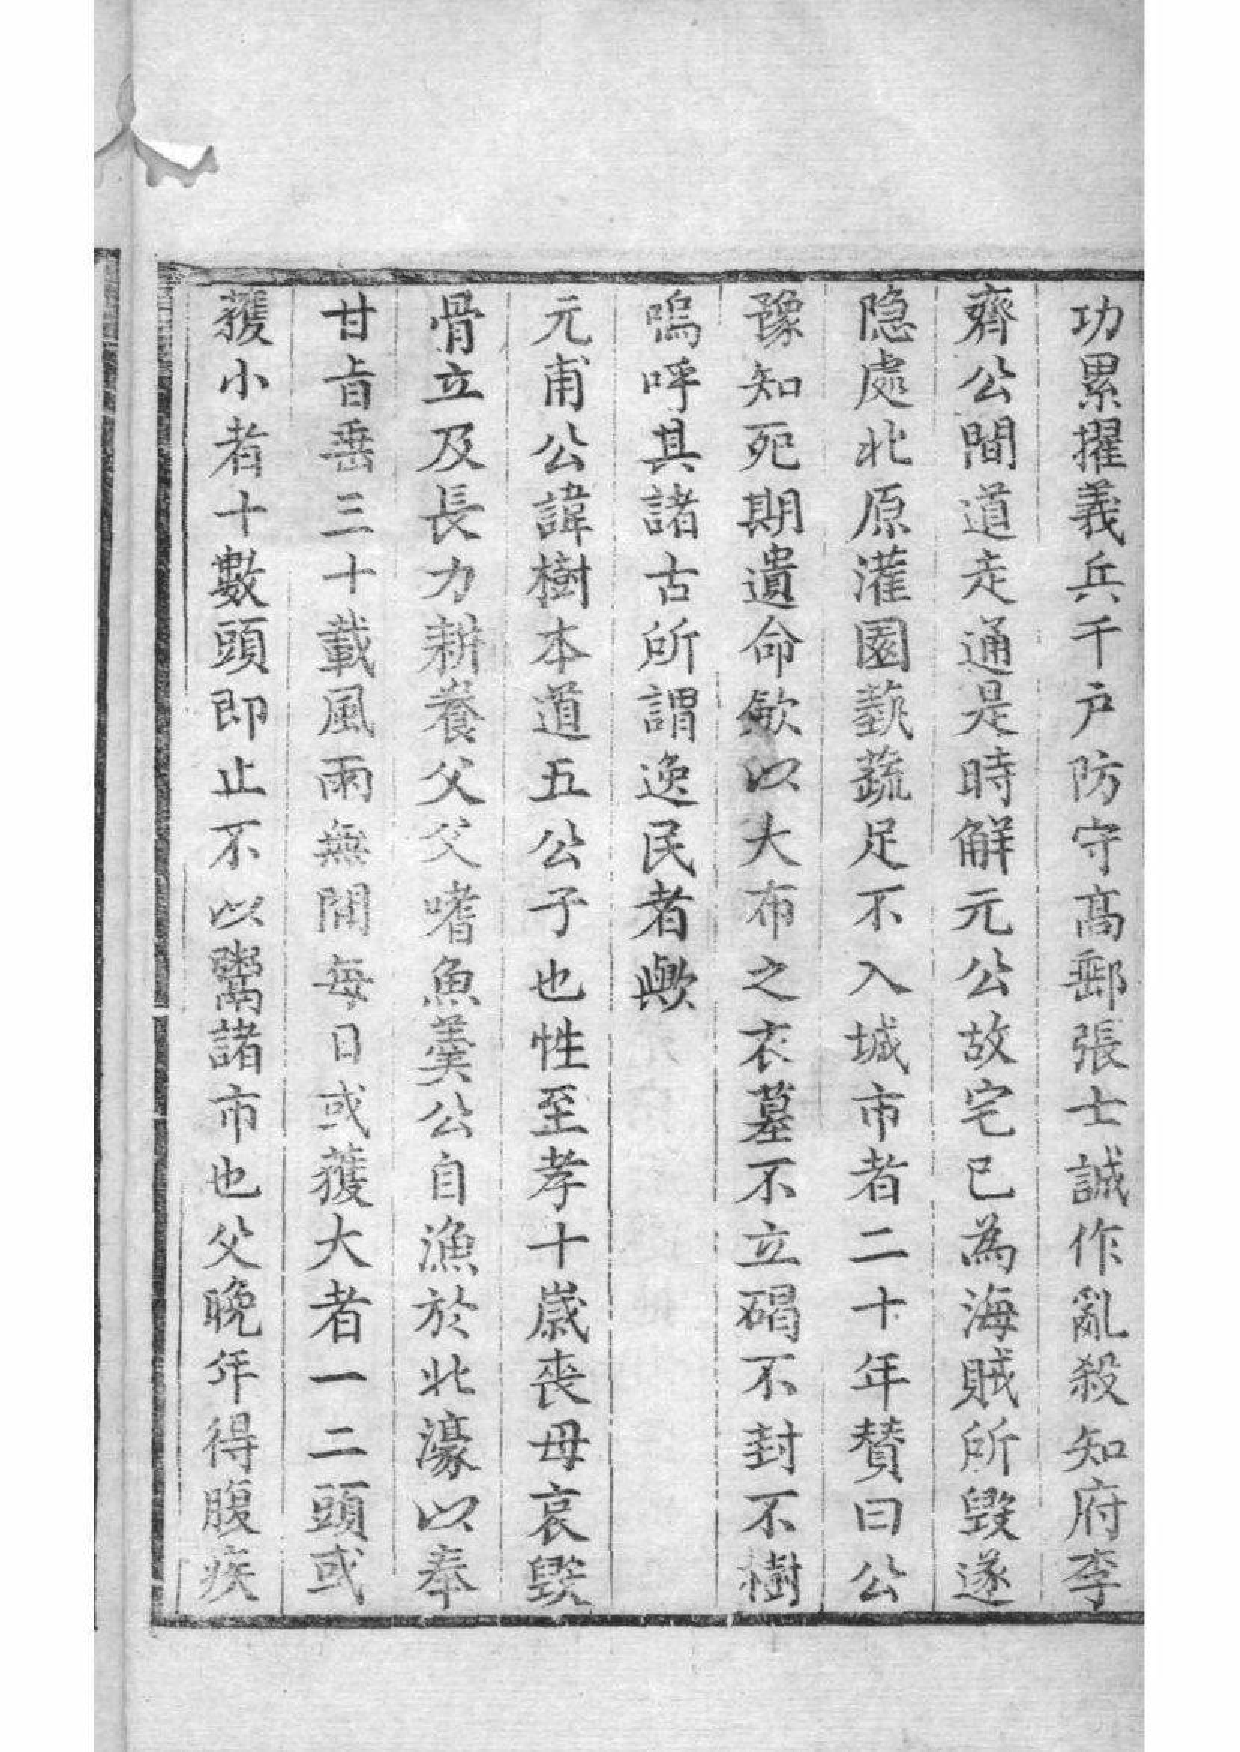 功累擢義兵千户防守髙郵張士誠作亂殺知府李
齊公間道走通是時解元公故宅已為海賊所毀遂
隐處北原灌園蓺蔬足不入城市者二十年賛曰公
豫知死期遺命歛以大布之衣墓不立碣不封不樹
嗚呼其諸古所謂逸民者歟
元甫公諱樹本道五公子也性至孝十嵗喪母哀毀
骨立及長力耕養父父嗜魚羹公自漁於北濠以奉
甘㫖垂三十載風雨無間每日或獲大者一二頭或
獲小者十數頭即止不以鬻諸市也父晚年得腹疾